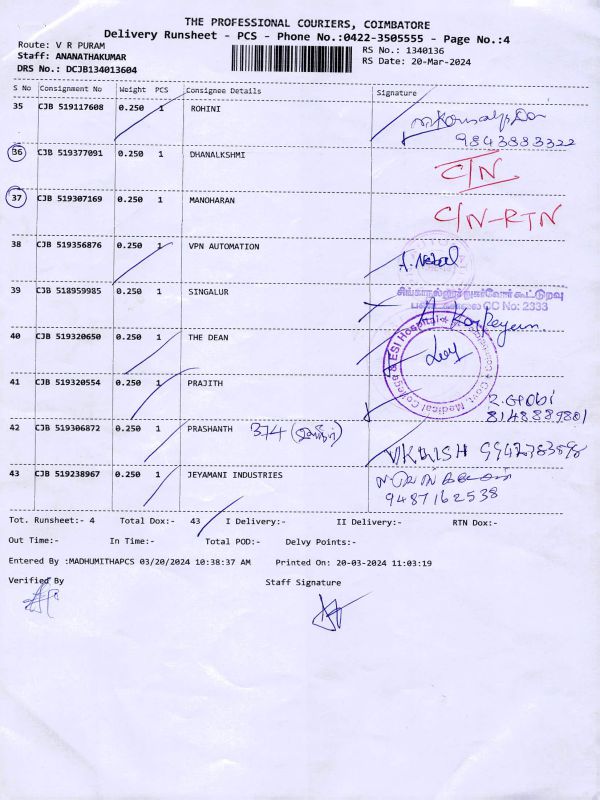 THE PROFESSIONAL COURIERS, COIMBATORE
Delivery Runsheet - PCS - Phone No.:0422-3505555 - Page No.:4
Route: V R PURAM
RS No.: 1340136
Staff: ANANATHAKUMAR
RS Date: 20-Mar-2024
DRS No.: DCJB134013604
S No Consignment No Weight PCS Consignee Details Signature
35 CJB 519117608 0.250 1 ROHINI
9843883322
36 CJB 519377091 0.250 1 DHANALKSHMI C/N
37 CJB 519307169 0.250 1 MANOHARAN C/N-RTN
38 CJB 519356876 0.250 1 VPN AUTOMATION
39 CJB 518959985 0.250 1 SINGALUR
CC No: 2333
40 CJB 519320650 0.250 1 THE DEAN
Govt. Medical College & ESI Hospital
41 CJB 519320554 0.250 1 PRAJITH R. Gobi
8148889801
42 CJB 519306872 0.250 1 PRASHANTH 374
43 CJB 519238967 0.250 1 JEYAMANI INDUSTRIES
9487162538
Tot. Runsheet:- 4 Total Dox:- 43 I Delivery:- II Delivery:- RTN Dox:-
Out Time:- In Time:- Total POD:- Delvy Points:-
Entered By :MADHUMITHAPCS 03/20/2024 10:38:37 AM Printed On: 20-03-2024 11:03:19
Verified By Staff Signature